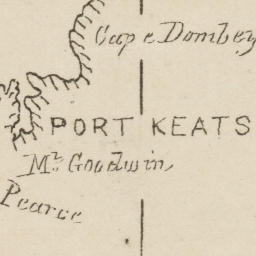 Cape Dombey
PORT KEATS
Mt. Goodwin
Pearce